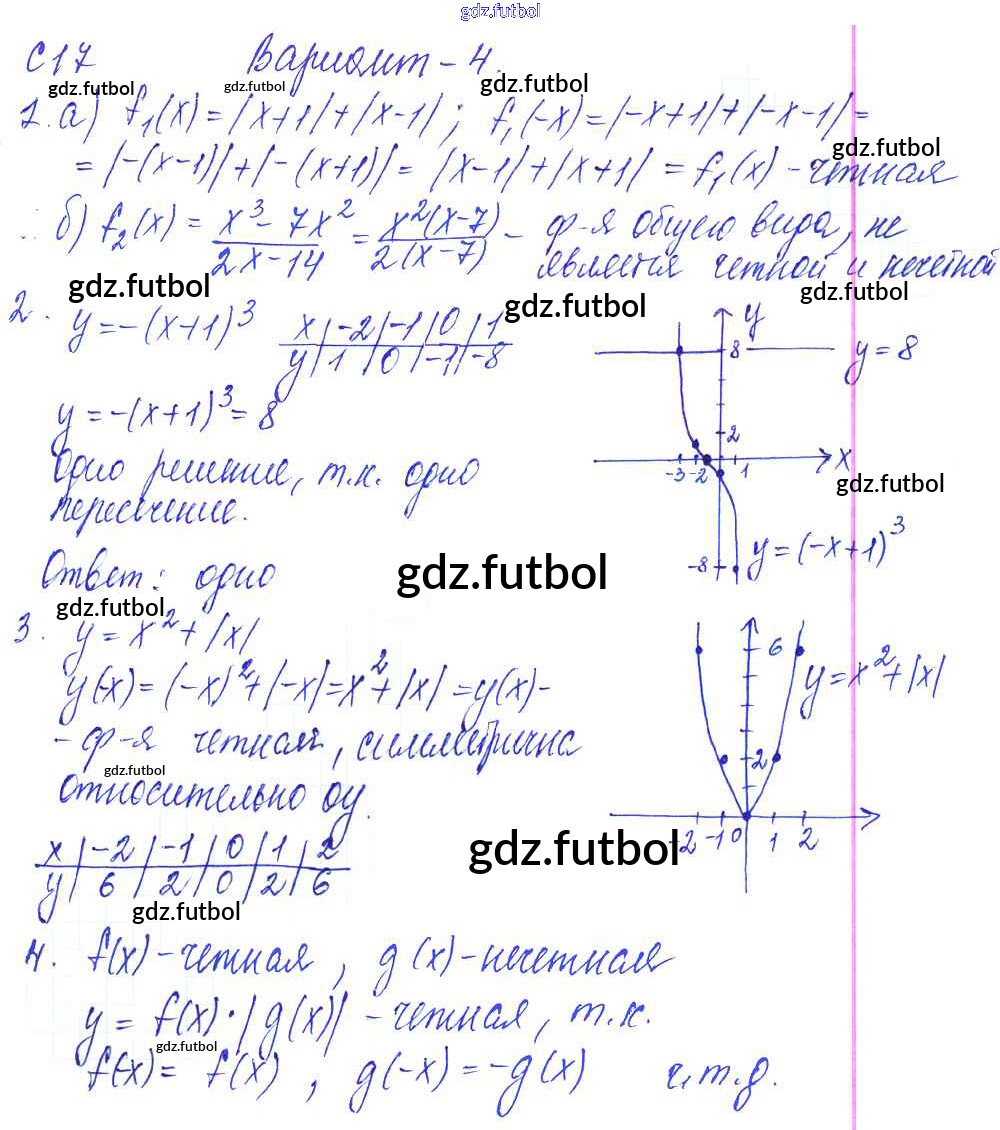 gdz.futbol
С17 Вариант - 4.
gdz.futbol gdz.futbol gdz.futbol
1. а) f₁(x) = |x+1| + |x-1| ; f₁(-x) = |-x+1| + |-x-1| =
gdz.futbol
= |-(x-1)| + |-(x+1)| = |x-1| + |x+1| = f₁(x) - четная
б) f₂(x) = (x³ - 7x²)/(2x - 14) = x²(x-7)/2(x-7) - ф-я общего вида, не
является четной и нечетной
gdz.futbol gdz.futbol gdz.futbol
2. y = -(x+1)³
x | -2 | -1 | 0 | 1
y | 1 | 0 | -1 | -8
y = -(x+1)³ = 8
Одно решение, т.к. одно
пересечение.
Ответ: одно
y
8 y = 8
2
-3 -2 1 x
gdz.futbol
-8 y = (-x+1)³
gdz.futbol
gdz.futbol
3. y = x² + |x|
y(-x) = (-x)² + |-x| = x² + |x| = y(x) -
- ф-я четная, симметрична
gdz.futbol
относительно оу.
x | -2 | -1 | 0 | 1 | 2
y | 6 | 2 | 0 | 2 | 6
6 y = x² + |x|
2
-2 -1 0 1 2
gdz.futbol
gdz.futbol
4. f(x) - четная, g(x) - нечетная
y = f(x) · |g(x)| - четная, т.к.
gdz.futbol
f(-x) = f(x), g(-x) = -g(x) ч.т.д.